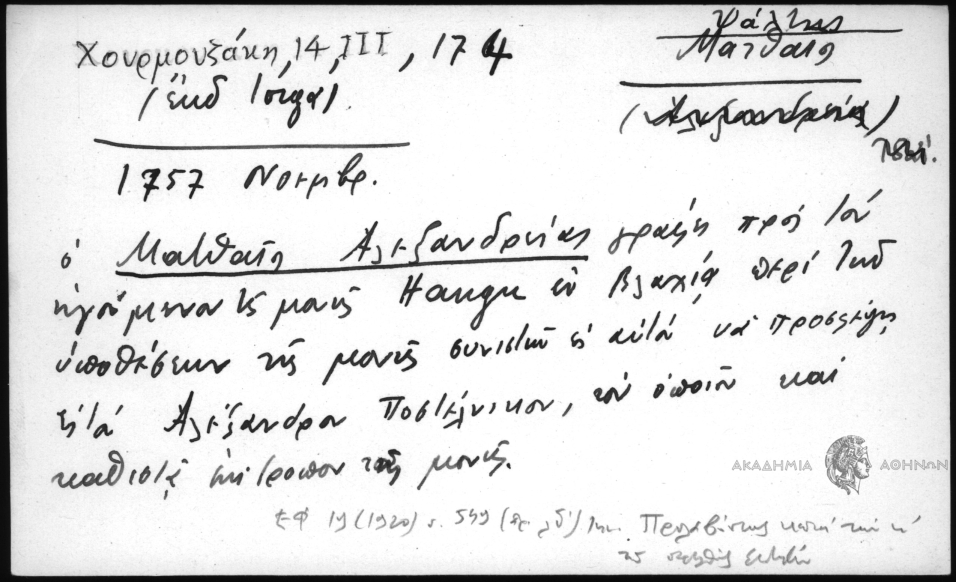 Χουρμουζάκη, 14, III, 174
(ἔκδ Ἰοργα)
Ψάλτης
Ματθαῖος
(Ἀλεξανδρείας)
1757 Νοεμβρ.
ὁ Ματθαῖος Ἀλεξανδρείας γράφει πρὸς τὸν
ἡγούμενον τῆς μονῆς Hangu ἐν Βλαχίᾳ περὶ τῶν
ὑποθέσεων τῆς μονῆς συνιστῶν εἰς αὐτὸ νὰ προσέχῃ
Ἀλέξανδρον Ποστέλνικον, τὸν ὁποῖον καὶ
καθιστᾷ ἐπίτροπον τῆς μονῆς.
ΑΚΑΔΗΜΙΑ ΑΘΗΝΩΝ
ΕΦ 19 (1920) σ. 549